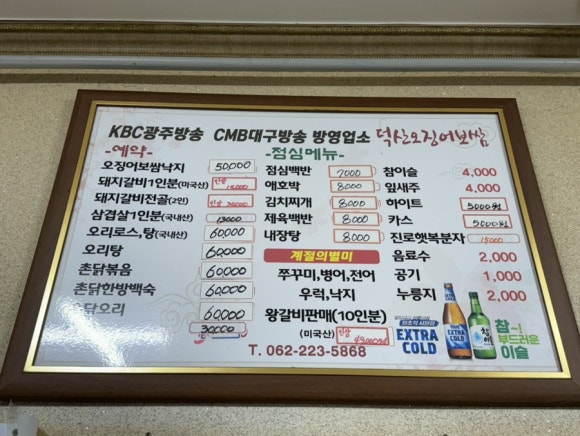 KBC광주방송 CMB대구방송 방영업소 덕산오징어보쌈
-예약-
오징어보쌈낙지 50,000
돼지갈비1인분(미국산) 인상 15,000
돼지갈비전골(2인) 인상 30,000
삼겹살1인분(국내산) 13000
오리로스,탕(국내산) 60,000
오리탕 60,000
촌닭볶음 60,000
촌닭한방백숙 60,000
닭오리 60000
30000
-점심메뉴-
점심백반 7000
애호박 8000
김치찌개 8000
제육백반 8000
내장탕 8000
계절의별미
쭈꾸미,병어,전어
우럭,낙지
왕갈비판매(10인분)
(미국산) 인상
T. 062-223-5868
참이슬 4,000
잎새주 4,000
하이트 5000원
카스 5000원
진로햇복분자 15000
음료수 2,000
공기 1,000
누룽지 2,000
EXTRA
COLD
참~!
부드러운
이슬